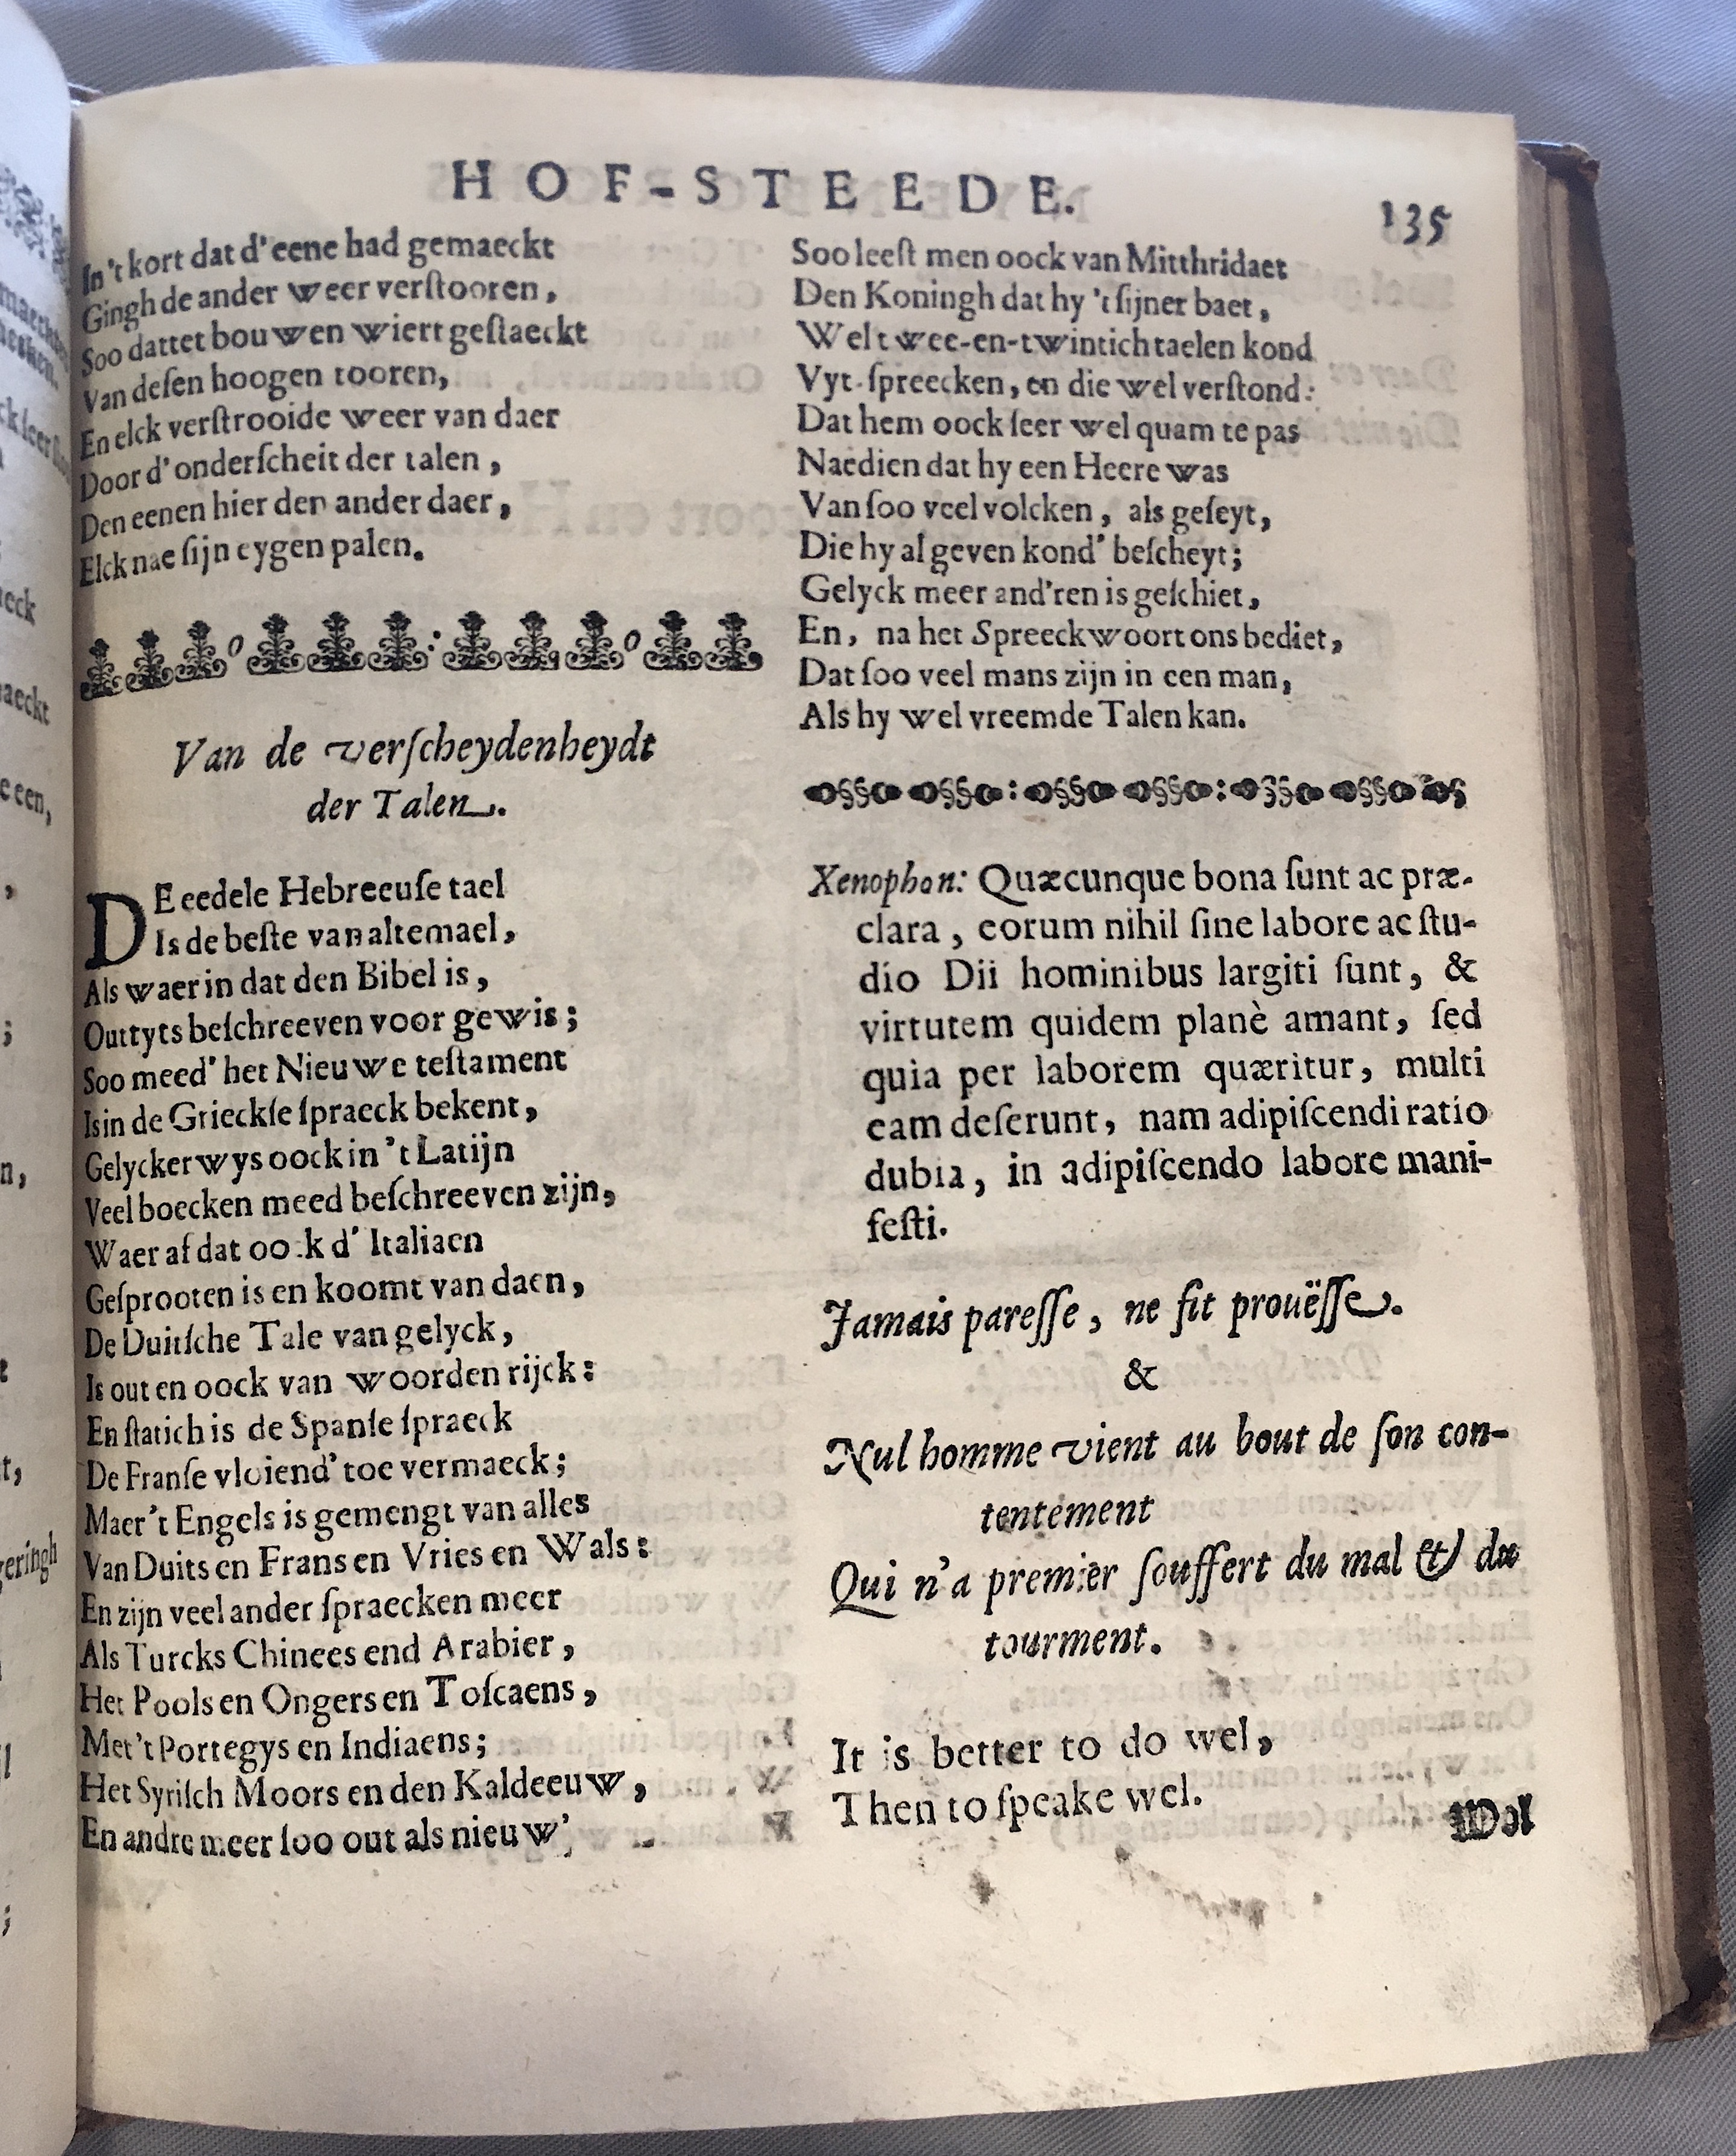 HOF-STEEDE.
135
In 't kort dat d' eene had gemaeckt
Gingh de ander weer verſtooren,
Soo dattet bouwen wiert geſtaeckt
Van deſen hoogen tooren,
En elck verſtrooide weer van daer
Door d' onderſcheit der talen,
Den eenen hier den ander daer,
Elck nae ſijn eygen palen.
Van de verſcheydenheydt
der Talen.
DE eedele Hebreeuſe tael
Is de beſte van altemael,
Als waer in dat den Bibel is,
Outtyts beſchreeven voor gewis;
Soo meed' het Nieuwe teſtament
Is in de Grieckſe ſpraeck bekent,
Gelyckerwys oock in 't Latijn
Veel boecken meed beſchreeven zijn,
Waer af dat oock d' Italiaen
Geſprooten is en koomt van daen,
De Duitſche Tale van gelyck,
Is out en oock van woorden rijck:
En ſtatich is de Spanſe ſpraeck
De Franſe vloiend' toe vermaeck;
Maer 't Engels is gemengt van alles
Van Duits en Frans en Vries en Wals:
En zijn veel ander ſpraecken meer
Als Turcks Chinees end Arabier,
Het Pools en Ongers en Toſcaens,
Met 't Portegys en Indiaens;
Het Syriſch Moors en den Kaldeeuw,
En andre meer ſoo out als nieuw;
Soo leeſt men oock van Mitthridaet
Den Koningh dat hy 't ſijner baet,
Wel twee-en-twintich taelen kond
Vyt-ſpreecken, en die wel verſtond:
Dat hem oock ſeer wel quam te pas
Naedien dat hy een Heere was
Van ſoo veel volcken, als geſeyt,
Die hy al geven kond' beſcheyt;
Gelyck meer and'ren is geſchiet,
En, na het Spreeckwoort ons bediet,
Dat ſoo veel mans zijn in een man,
Als hy wel vreemde Talen kan.
Xenophon: Quæcunque bona ſunt ac præ-
clara, eorum nihil ſine labore ac ſtu-
dio Dii hominibus largiti ſunt, &
virtutem quidem planè amant, ſed
quia per laborem quæritur, multi
eam deſerunt, nam adipiſcendi ratio
dubia, in adipiſcendo labore mani-
feſti.
Jamais pareſſe, ne fit prouëſſe.
&
Nul homme vient au bout de ſon con-
tentement
Qui n'a premier ſouffert du mal & du
tourment.
It is better to do wel,
Then to ſpeake wel.
Wel